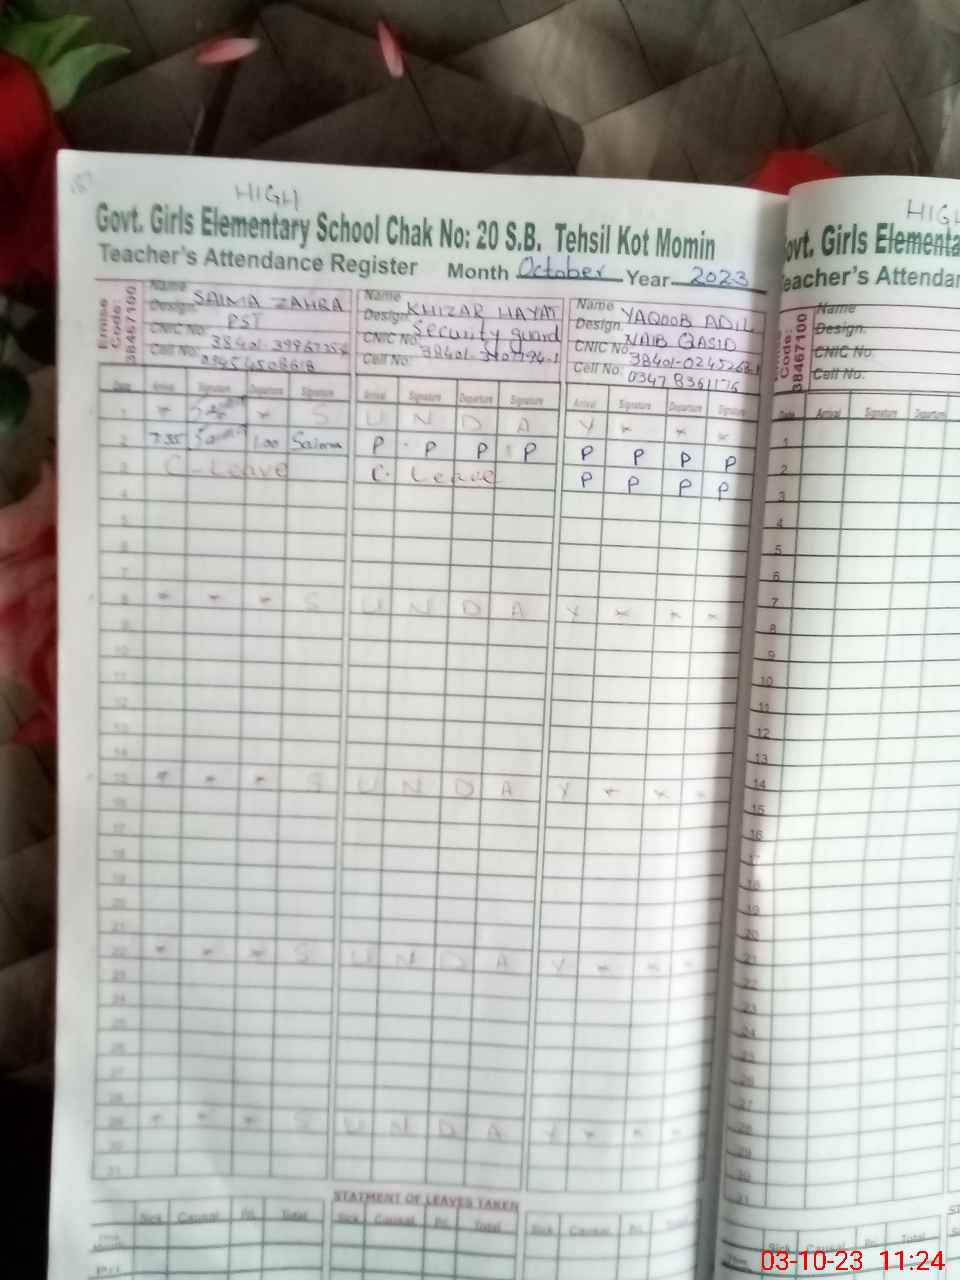 HIGH
Govt. Girls Elementary School Chak No: 20 S.B. Tehsil Kot Momin
Teacher's Attendance Register Month October Year 2023
Emise Code: 38467100
Name SAIMA ZAHRA
Design. PST
CNIC No:
Cell No:
Name KHIZAR HAYAT
Design. Security guard
CNIC No:
Cell No:
Name YAQOOB ADIL
Design. NAIB QASID
CNIC No:
Cell No: 0347 8361176
Date Arrival Signature Departure Signature Arrival Signature Departure Signature Arrival Signature Departure Signature
1 * * S U N D A Y * * *
2 7:35 Saima 1:00 Saima P P P P P P P P
3 C-Leave C. Leave P P P P
4
5
6
7
8 * * * S U N D A Y * * *
9
10
11
12
13
14
15 * * * S U N D A Y * * *
16
17
18
19
20
21
22 * * * S U N D A Y * * *
23
24
25
26
27
28
29 * * * S U N D A Y * * *
30
31
STATMENT OF LEAVES TAKEN
Sick Causal Pri. Total Sick Causal Pri. Total Sick Causal Pri. Total
HIGH
Govt. Girls Elementa
Teacher's Attendan
Code: 38467100
Name
Design.
CNIC No:
Cell No:
Date Arrival Signature Departure
1
2
3
4
5
6
7
8
9
10
11
12
13
14
15
16
17
18
19
20
21
22
23
24
25
26
27
28
29
30
31
Sick Causal Pri. Total
03-10-23 11:24